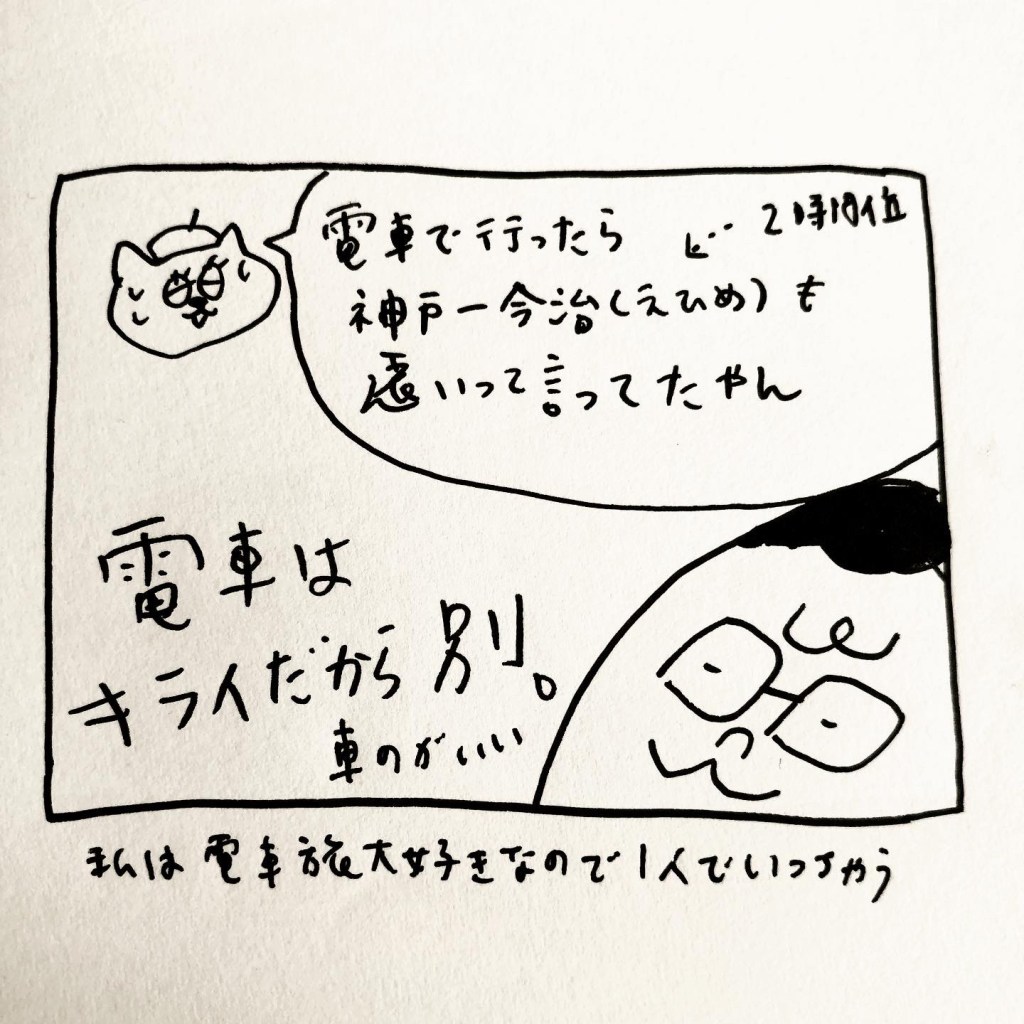 電車で行ったら
2時間位
神戸ー今治(えひめ)も
って言ってたやん
電車は
キライだから別。
車のがいい
私は電車旅大好きなので1人でいっちゃう